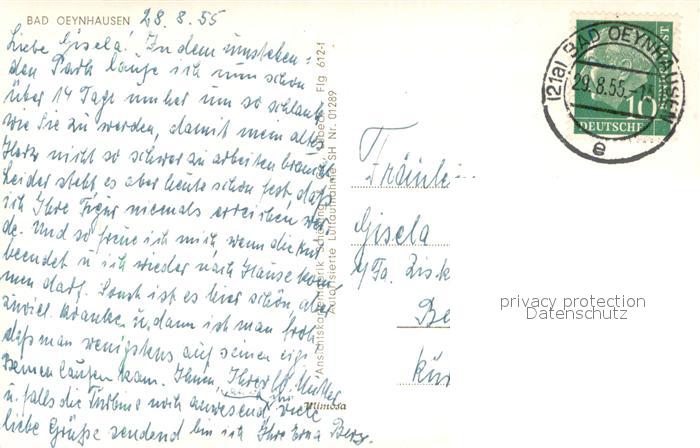 BAD OEYNHAUSEN 28.8.55
Liebe Gisela! In dem umstehen-
den Park laufe ich nun schon
über 14 Tage umher um so schlank
wie Sie zu werden, damit mein altes
Herz nicht so schwer zu arbeiten braucht.
Leider steht es aber heute schon fest, daß
ich Ihre Figur niemals erreichen wer-
de. Und so freue ich mich, wenn die Kur
beendet u. ich wieder nach Hause kom-
men darf. Sonst ist es hier schön, aber
zuviel Kranke u. dann ist man froh
daß man wenigstens auf seinen eige-
nen Beinen laufen kann. Ihnen, Ihrer lb. Mutter
u. falls die noch anwesend viele
liebe Grüße sendend bin ich Ihre Erna Berg.
Ansichtskartenfabrik Schöning & Co., Lübeck Flg 612-1
Autorisierte Luftaufnahme SH Nr. 01289
Mimosa
(21a) BAD OEYNHAUSEN
29.8.55.
e
10
DEUTSCHE
Fräulein
Gisela
Be
privacy protection
Datenschutz